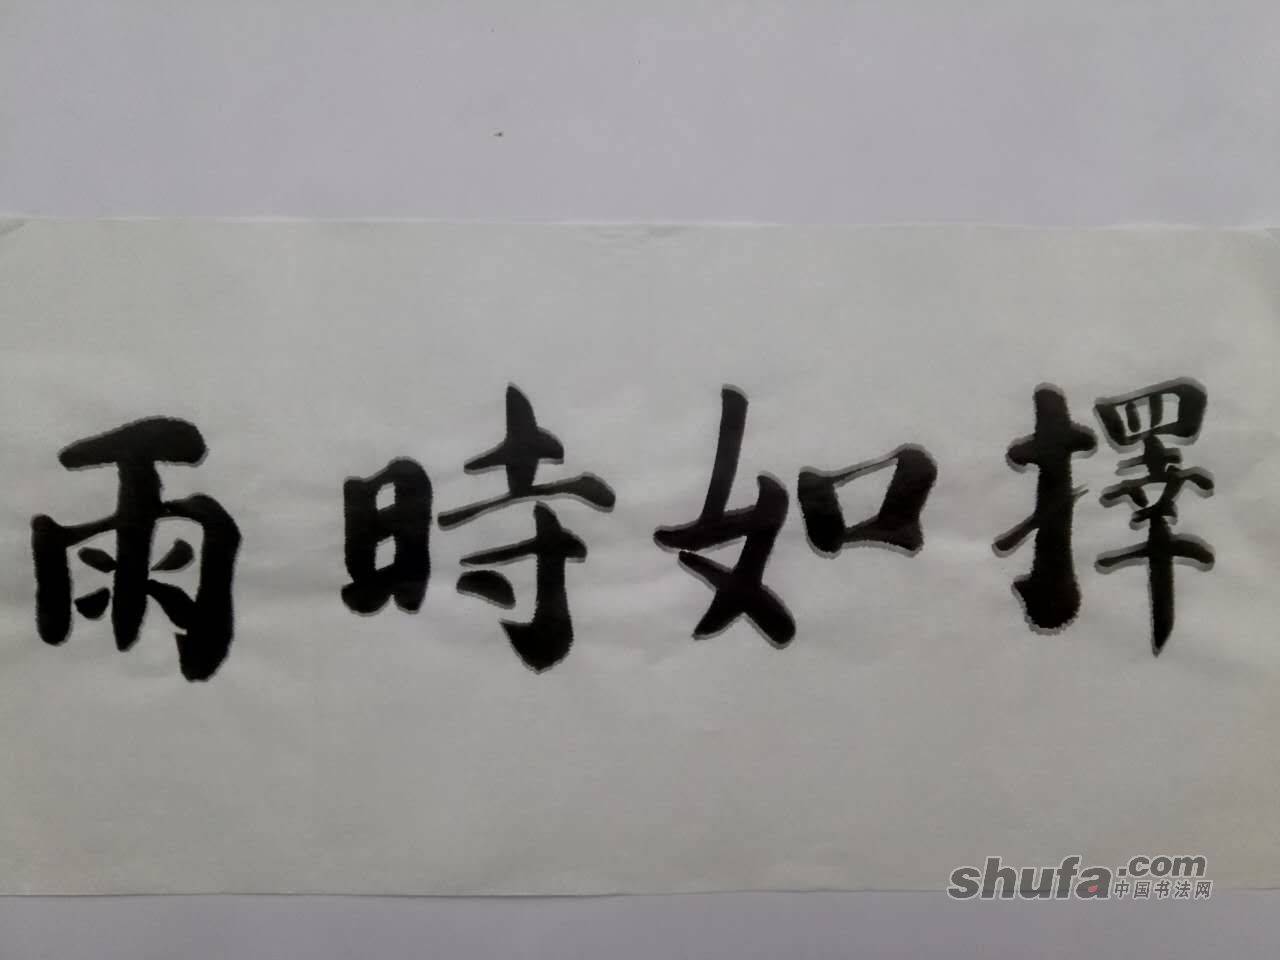 擇如時雨
shufa.com
中国书法网